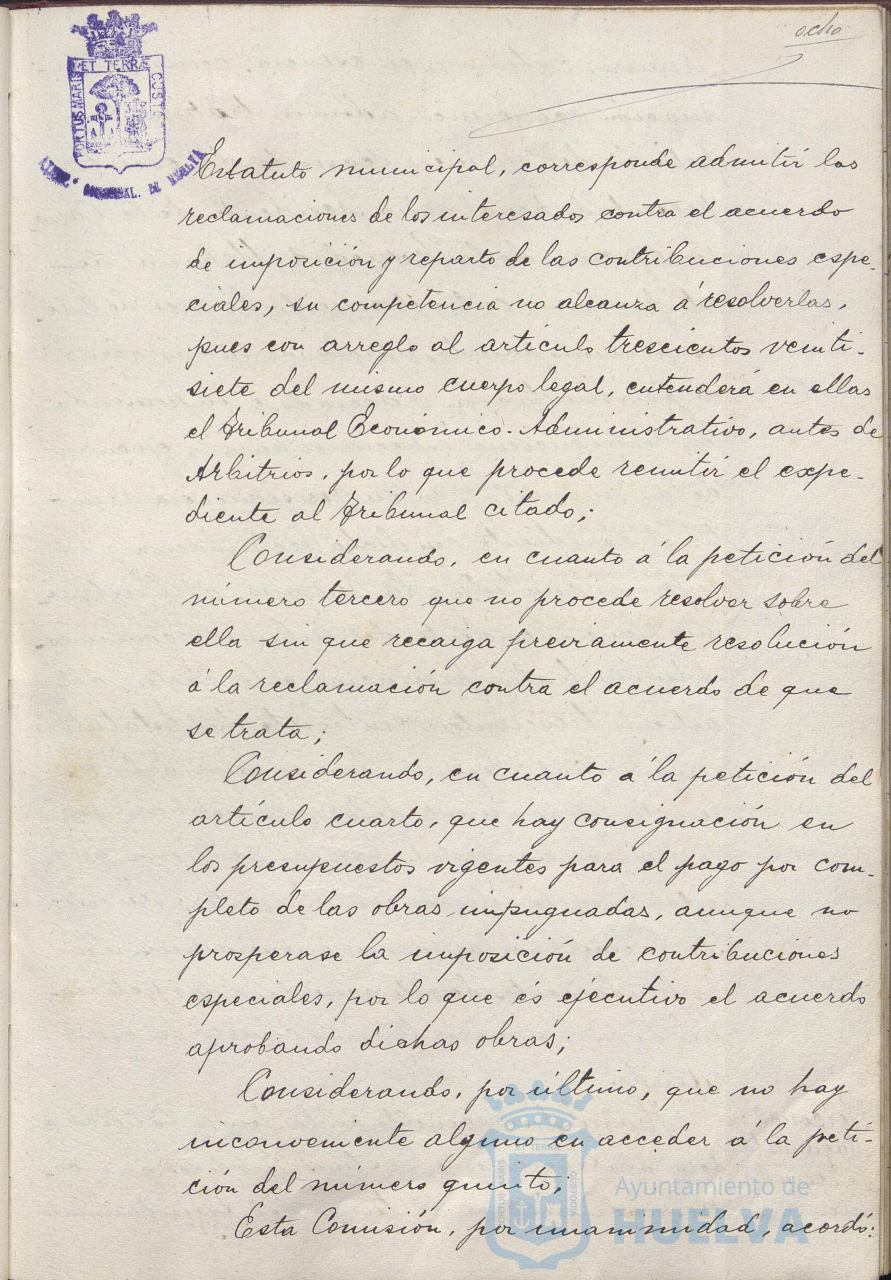 ocho
PORTUS MARIS ET TERRÆ CUSTODIA
DE HUELVA
Estatuto municipal, corresponde admitir las
reclamaciones de los interesados contra el acuerdo
de imposición y reparto de las contribuciones espe-
ciales, su competencia no alcanza á resolverlas,
pues con arreglo al artículo trescientos veinti-
siete del mismo cuerpo legal, entenderá en ellas
el Tribunal Económico-Administrativo, antes de
Arbitrios, por lo que procede remitir el expe-
diente al Tribunal citado;
Considerando, en cuanto á la petición del
número tercero que no procede resolver sobre
ella sin que recaiga previamente resolución
á la reclamación contra el acuerdo de que
se trata;
Considerando, en cuanto á la petición del
artículo cuarto, que hay consignación en
los presupuestos vigentes para el pago por com-
pleto de las obras impugnadas, aunque no
prosperase la imposición de contribuciones
especiales, por lo que és ejecutivo el acuerdo
aprobando dichas obras;
Considerando, por último, que no hay
inconveniente alguno en acceder á la peti-
ción del número quinto;
Esta Comisión, por unanimidad, acordó:
PORTUS MARIS ET TERRÆ CUSTODIA
Ayuntamiento de
HUELVA